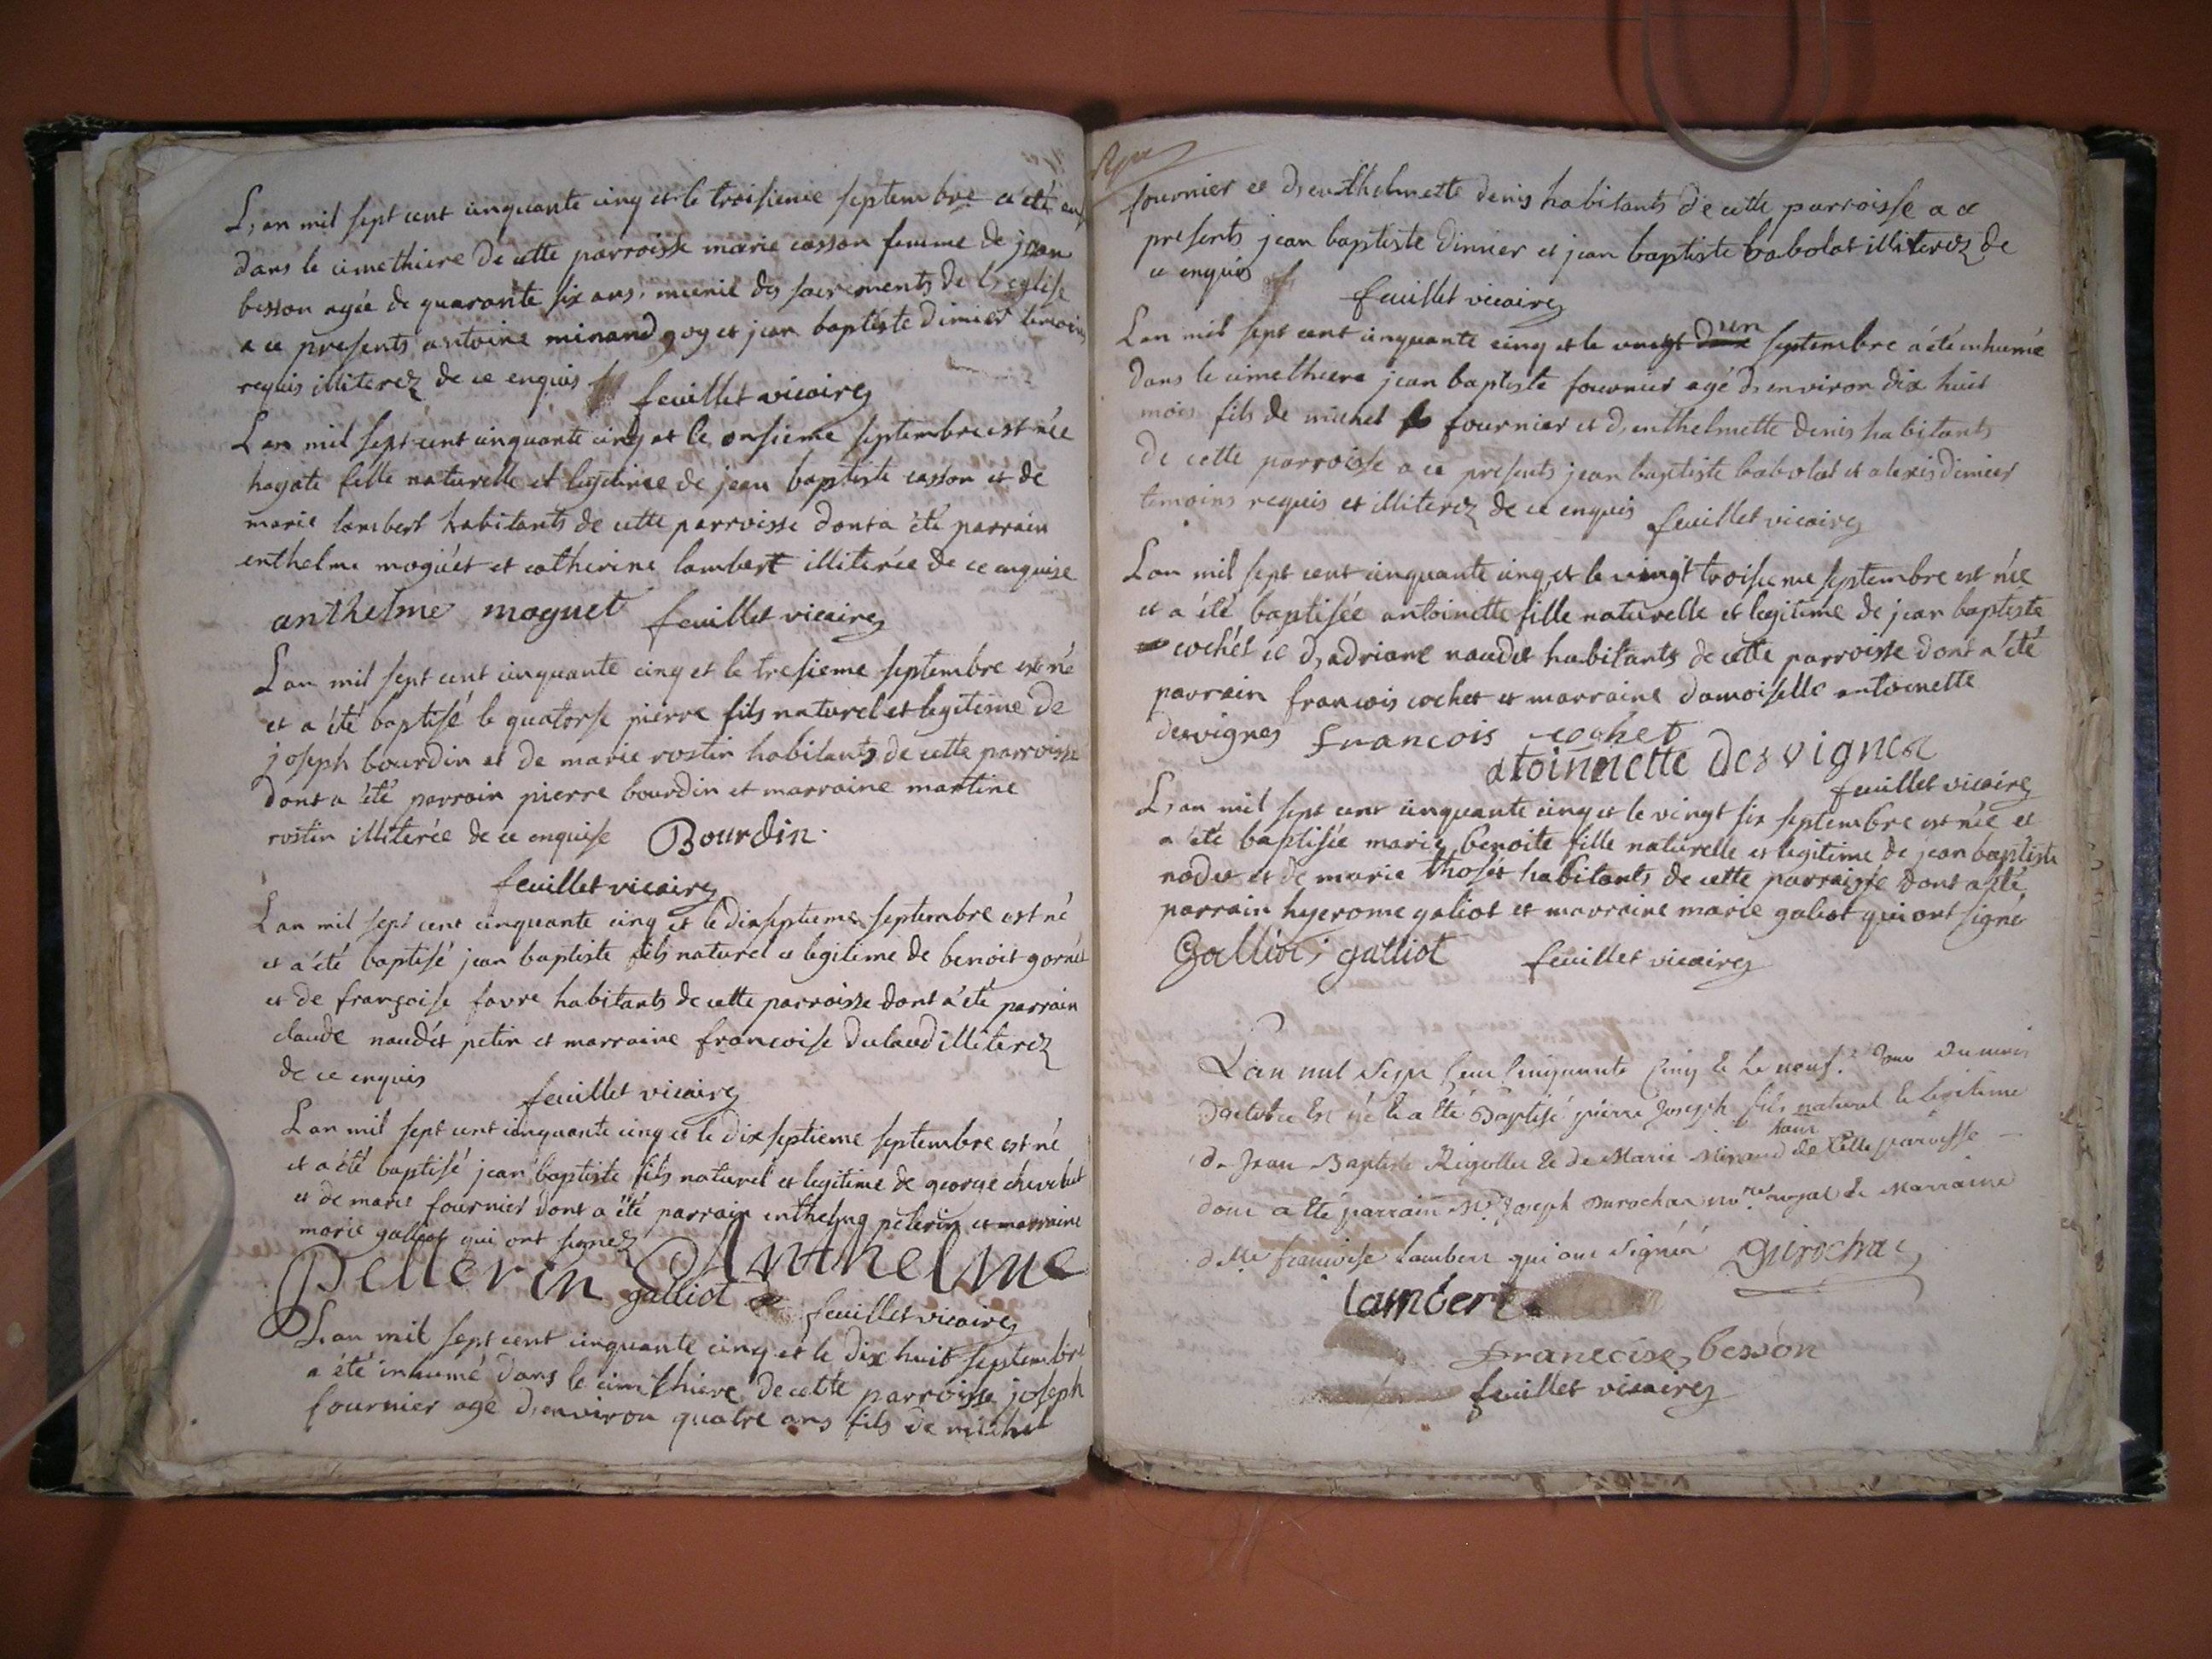 L,an mil sept cent cinquante cinq et le troisieme septembre a été
dans le cimethiere de cette parroisse marie casson femme de jean
besson agée de quarante six ans, munie des sacrements de l,eglise
a ce presents antoine minand goy et jean baptiste dimier temoins
requis illiterez de ce enquis feuillet vicaire
L an mil sept cent cinquante cinq et le onsieme septembre est née
hagate fille naturelle et legitime de jean baptiste casson et de
marie lambert habitants de cette parroisse dont a été parrain
enthelme moguét et catherine lambert illiterée de ce enquise
anthelme moguet feuillet vicaire
L an mil sept cent cinquante cinq et le tresieme septembre est né
et a été baptisé le quatorse pierre fils naturel et legitime de
joseph bourdin et de marie rostin habitants de cette parroisse
dont a été parrain pierre bourdin et marraine martine
rostin illiterée de ce enquise Bourdin
feuillet vicaire
L an mil sept cent cinquante cinq et le dixseptieme septembre est né
et a été baptisé jean baptiste fils naturel et legitime de benoit gornét
et de françoise favre habitants de cette parroisse dont a été parrain
claude naudét petin et marraine francoise dulaud illiterez
de ce enquis feuillet vicaire
L an mil sept cent cinquante cinq et le dixseptieme septembre est né
et a été baptisé jean baptiste fils naturel et legitime de george
et de marie fournier dont a été parrain enthelme pelerin et marraine
marie galliot qui ont signez
Pellerin Anthelme
galliot feuillet vicaire
L,an mil sept cent cinquante cinq et le dix huit septembre
a été inhumé dans le cimethiere de cette parroisse joseph
fournier agé d,environ quatre ans fils de michel
fournier et d,enthelmette denis habitants de cette parroisse a ce
presents jean baptiste dimier et jean baptiste babolat illiterez de
ce enquis feuillet vicaire
L an mil sept cent cinquante cinq et le vingt un septembre a été inhumé
dans le cimethiere jean baptiste fournier agé d,environ dix huit
mois fils de michel fournier et d,enthelmette denis habitants
de cette parroisse a ce presents jean baptiste babolat et alexis dimier
temoins requis et illiterez de ce enquis feuillet vicaire
L an mil sept cent cinquante cinq et le vingt troisieme septembre est née
et a été baptisée antoinette fille naturelle et legitime de jean baptiste
cochét et d,adriane naudet habitants de cette parroisse dont a été
parrain francois cochet et marraine damoiselle antoinette
desvignes francois cochet
atoinnette desvignes
feuillet vicaire
L,an mil sept cent cinquante cinq et le vingt six septembre est née et
a été baptisée marie benoite fille naturelle et legitime de jean baptiste
nodet et de marie thosét habitants de cette parroisse dont a été
parrain hyerome galiot et marraine marie galiot qui ont signé
Galliot galliot feuillet vicaire
L'an mil sept cent cinquante cinq et le neuf.e jour du mois
d'octobre est né et a été Baptisé pierre Joseph fils naturel et legitime
de Jean Baptiste Rigollet et de Marie Minand de Cette paroisse
dont a été parrain Mr Joseph Durochat nore royal et Marraine
dlle francoise Lambert qui ont signéz Durochat
lambert
francoise besson
feuillet vicaire